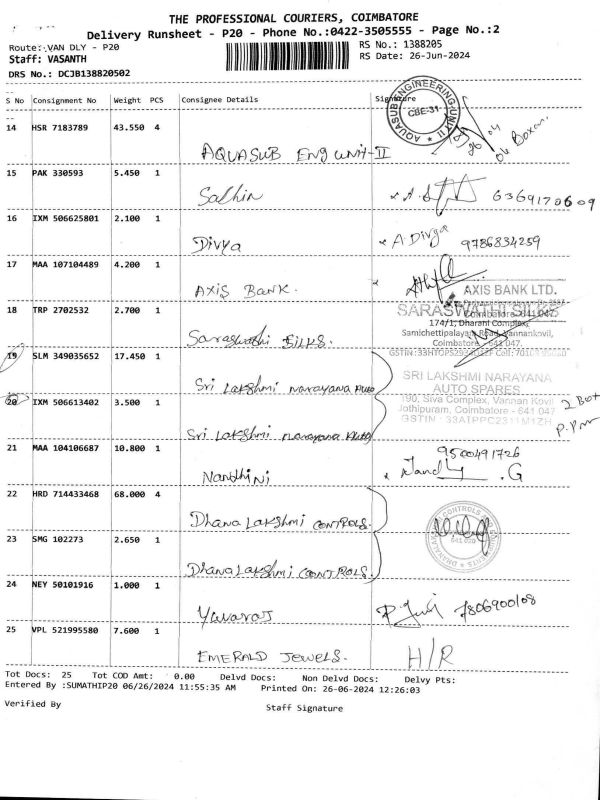 THE PROFESSIONAL COURIERS, COIMBATORE
Delivery Runsheet - P20 - Phone No.:0422-3505555 - Page No.:2
Route: VAN DLY - P20
RS No.: 1388205
Staff: VASANTH
RS Date: 26-Jun-2024
DRS No.: DCJB138820502
S No Consignment No Weight PCS Consignee Details Signature
14 HSR 7183789 43.550 4
AQUASUB ENG UNIT-II
AQUASUB ENGINEERING-UNIT II
CBE-31
15 PAK 330593 5.450 1
Sachin
6369170609
16 IXM 506625801 2.100 1
Divya
A Divya 9786834259
17 MAA 107104489 4.200 1
AXIS BANK.
AXIS BANK LTD.
Coimbatore - 641 047.
18 TRP 2702532 2.700 1
Saraswathi SILKS.
SARASWATHI SILKS
174/1, Dharani Complex,
Samichettipalayam Road, Vannankovil,
Coimbatore - 641 047.
19 SLM 349035652 17.450 1
Sri Lakshmi Narayana Auto
SRI LAKSHMI NARAYANA
AUTO SPARES
190, Siva Complex, Vannan Kovil
Jothipuram, Coimbatore - 641 047
GSTIN : 33ATPPC2311M1ZH
20 IXM 506613402 3.500 1
Sri Lakshmi narayana Auto
2 Box
21 MAA 104106687 10.800 1
Nandhini
9500491726
Nandhy .G
22 HRD 714433468 68.000 4
Dhana Lakshmi CONTROLS.
23 SMG 102273 2.650 1
Dhana Lakshmi CONTROLS.
24 NEY 50101916 1.000 1
Yuvaraj
7806900108
25 VPL 521995580 7.600 1
EMERALD JEWELS.
H/R
Tot Docs: 25 Tot COD Amt: 0.00 Delvd Docs: Non Delvd Docs: Delvy Pts:
Entered By :SUMATHIP20 06/26/2024 11:55:35 AM Printed On: 26-06-2024 12:26:03
Verified By
Staff Signature